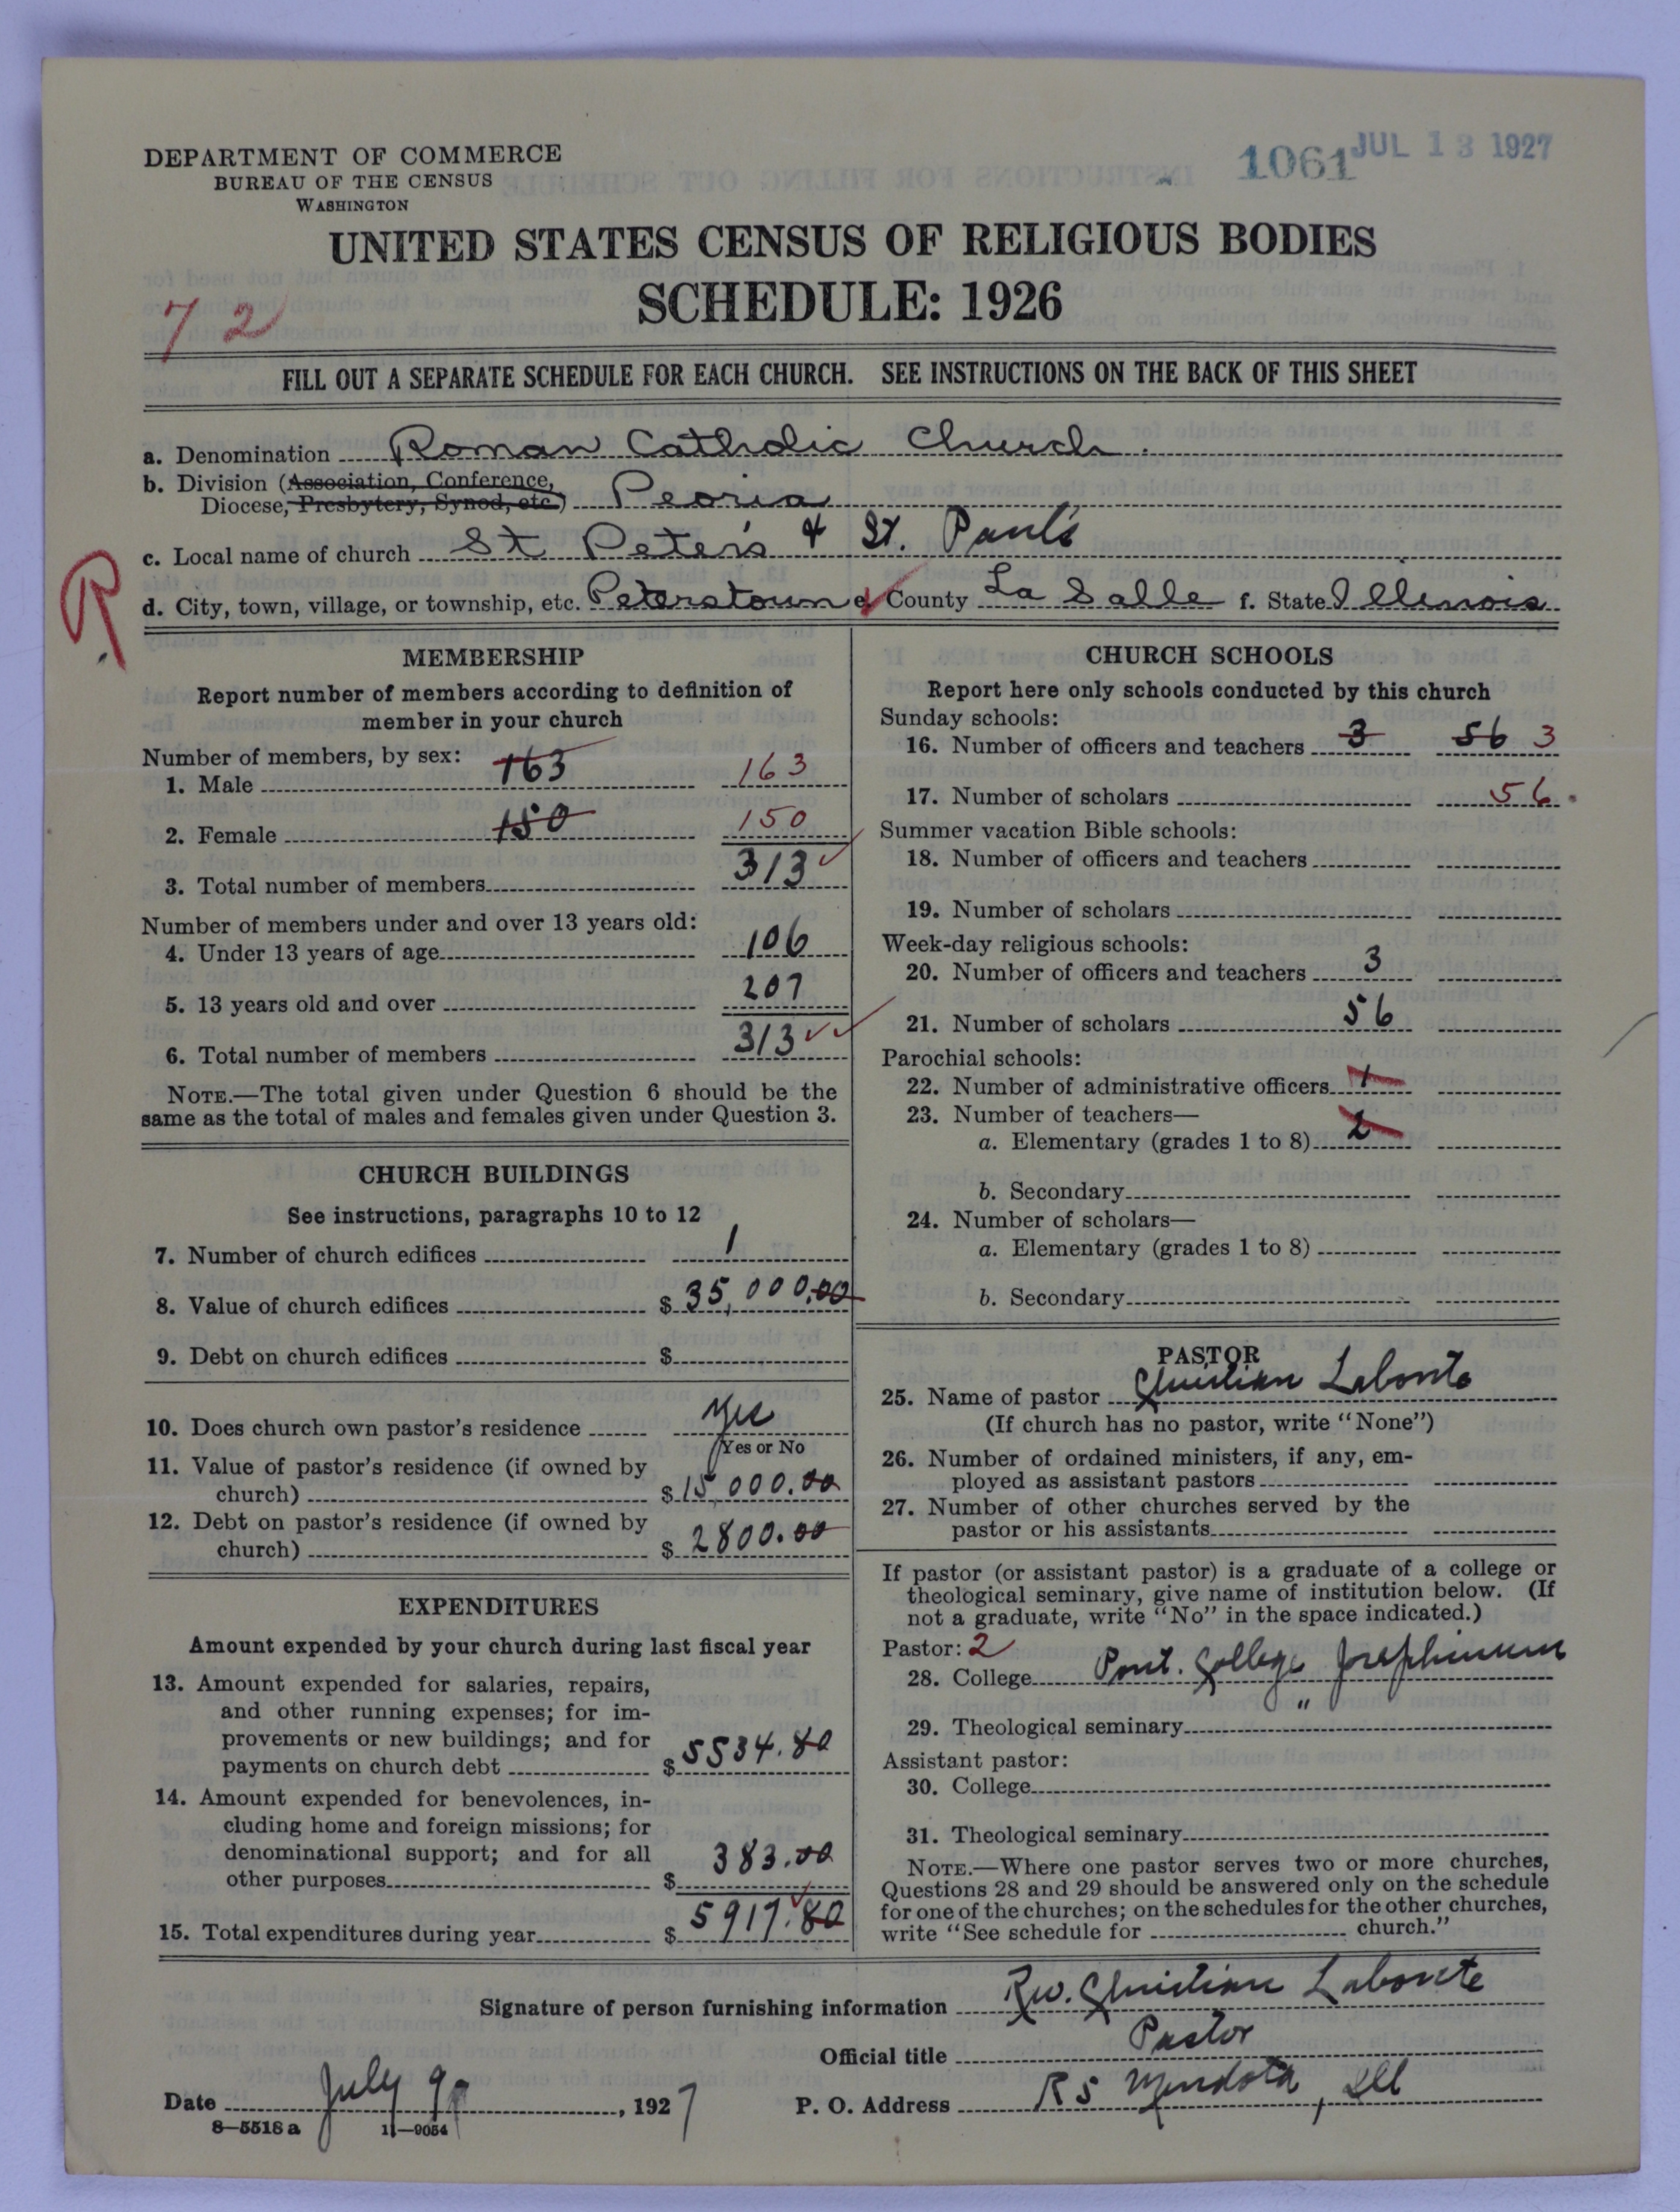 DEPARTMENT OF COMMERCE
BUREAU OF THE CENSUS
WASHINGTON
1061 JUL 13 1927
UNITED STATES CENSUS OF RELIGIOUS BODIES
SCHEDULE: 1926
72
FILL OUT A SEPARATE SCHEDULE FOR EACH CHURCH. SEE INSTRUCTIONS ON THE BACK OF THIS SHEET
a. Denomination Roman Catholic Church.
b. Division (Association, Conference,
Diocese, Presbytery, Synod, etc.) Peoria
c. Local name of church St Peter's & St. Paul's
R
d. City, town, village, or township, etc. Peterstown e. County La Salle f. State Illinois
MEMBERSHIP
Report number of members according to definition of
member in your church
Number of members, by sex:
1. Male 163 163
2. Female 150 150
3. Total number of members 313
Number of members under and over 13 years old:
4. Under 13 years of age 106
5. 13 years old and over 207
6. Total number of members 313
NOTE.—The total given under Question 6 should be the
same as the total of males and females given under Question 3.
CHURCH BUILDINGS
See instructions, paragraphs 10 to 12
7. Number of church edifices 1
8. Value of church edifices $ 35,000.00
9. Debt on church edifices $
10. Does church own pastor's residence Yes
Yes or No
11. Value of pastor's residence (if owned by
church) $ 15,000.00
12. Debt on pastor's residence (if owned by
church) $ 2800.00
EXPENDITURES
Amount expended by your church during last fiscal year
13. Amount expended for salaries, repairs,
and other running expenses; for im-
provements or new buildings; and for
payments on church debt $ 5534.80
14. Amount expended for benevolences, in-
cluding home and foreign missions; for
denominational support; and for all
other purposes $ 383.00
15. Total expenditures during year $ 5917.80
CHURCH SCHOOLS
Report here only schools conducted by this church
Sunday schools:
16. Number of officers and teachers 3 56 3
17. Number of scholars 56
Summer vacation Bible schools:
18. Number of officers and teachers
19. Number of scholars
Week-day religious schools:
20. Number of officers and teachers 3
21. Number of scholars 56
Parochial schools:
22. Number of administrative officers 1
23. Number of teachers—
a. Elementary (grades 1 to 8) 2
b. Secondary
24. Number of scholars—
a. Elementary (grades 1 to 8)
b. Secondary
PASTOR
25. Name of pastor Christian Laborite
(If church has no pastor, write "None")
26. Number of ordained ministers, if any, em-
ployed as assistant pastors
27. Number of other churches served by the
pastor or his assistants
If pastor (or assistant pastor) is a graduate of a college or
theological seminary, give name of institution below. (If
not a graduate, write "No" in the space indicated.)
Pastor: 2
28. College Pont. College Josephinum
29. Theological seminary "
Assistant pastor:
30. College
31. Theological seminary
NOTE.—Where one pastor serves two or more churches,
Questions 28 and 29 should be answered only on the schedule
for one of the churches; on the schedules for the other churches,
write "See schedule for church."
Signature of person furnishing information Rev. Christian Laborite
Official title Pastor
Date July 9, 1927 P. O. Address R 5 Mendota, Ill
8—5518 a 11—9054